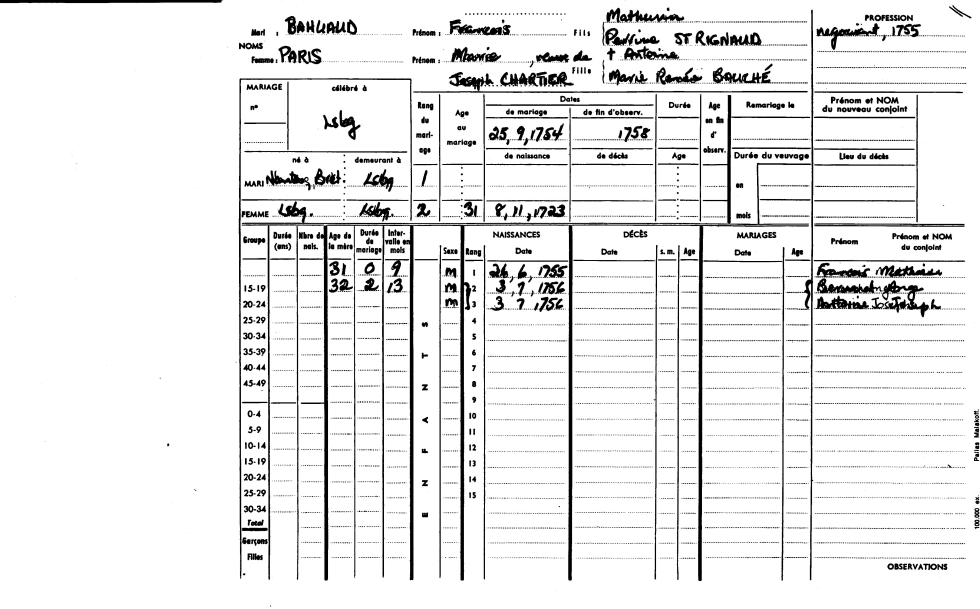 Mari : BAHUAUD Prénom : François Fils Mathurin PROFESSION
NOMS Perrine ST RIGNAUD negociant, 1755
Femme : PARIS Prénom : Marie, veuve de Fille + Antoine
Joseph CHARTIER Marie Renée BOUCHÉ
MARIAGE célébré à
n° Lsbg
Rang du mari- age Age au mariage Dates Durée Age en fin d' observ. Remariage le Prénom et NOM du nouveau conjoint
de mariage de fin d'observ.
25, 9, 1754 1758
né à demeurant à de naissance de décès Age Durée du veuvage Lieu du décès
MARI Lsbg 1 en
FEMME Lsbg. Lsbg. 2 31 8, 11, 1723 mois
Groupe Durée (ans) Nbre de nais. Age de la mère Durée de mariage Inter- valle en mois Sexe Rang NAISSANCES Date DÉCÈS Date s. m. Age MARIAGES Date Age Prénom Prénom et NOM du conjoint
31 0 9 m 1 26, 6, 1755 François
15-19 32 2 13 m 2 3, 7, 1756
20-24 m 3 3 7, 1756 Antoine
25-29 4
30-34 5
35-39 6
40-44 7
45-49 8
9
0-4 10
5-9 11
10-14 12
15-19 13
20-24 14
25-29 15
30-34
Total
Garçons
Filles
ENFANTS
OBSERVATIONS
100,000 ex.